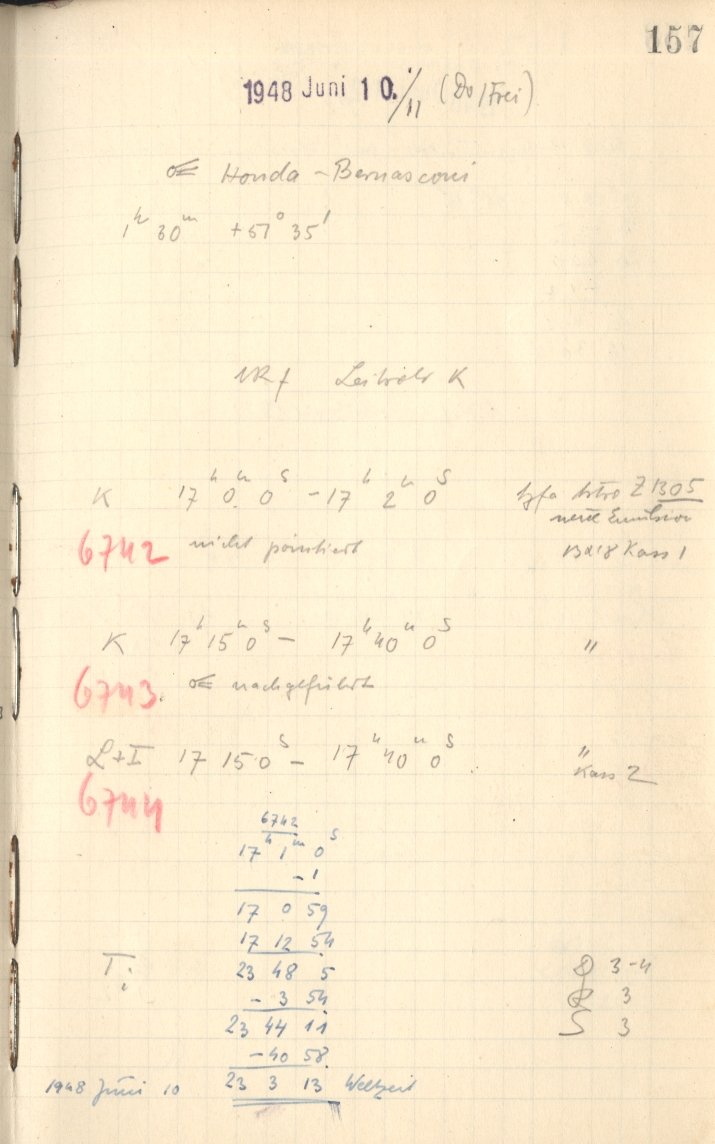 157
1948 Juni 10./11 (Do/Frei)
☄ Honda-Bernasconi
1ʰ 30ᵐ +51° 35'
Leitrohr K
K 17ʰ 0ᵐ 0ˢ - 17ʰ 2ᵐ 0ˢ Agfa Astro Z 1305
neue Emulsion
6742 nicht pointiert 13x18 Kass 1
K 17ʰ 15ᵐ 0ˢ - 17ʰ 40ᵐ 0ˢ "
6743. ☄ nachgeführt
L+I 17 15 0ˢ - 17ʰ 40ᵐ 0ˢ "
Kass 2
6744
6742
17ʰ 1ᵐ 0ˢ
-1
17 0 59
17 12 54
T: 23 48 5 3-4
- 3 54 R 3
23 44 11 S 3
- 40 58
1948 Juni 10 23 3 13 Weltzeit